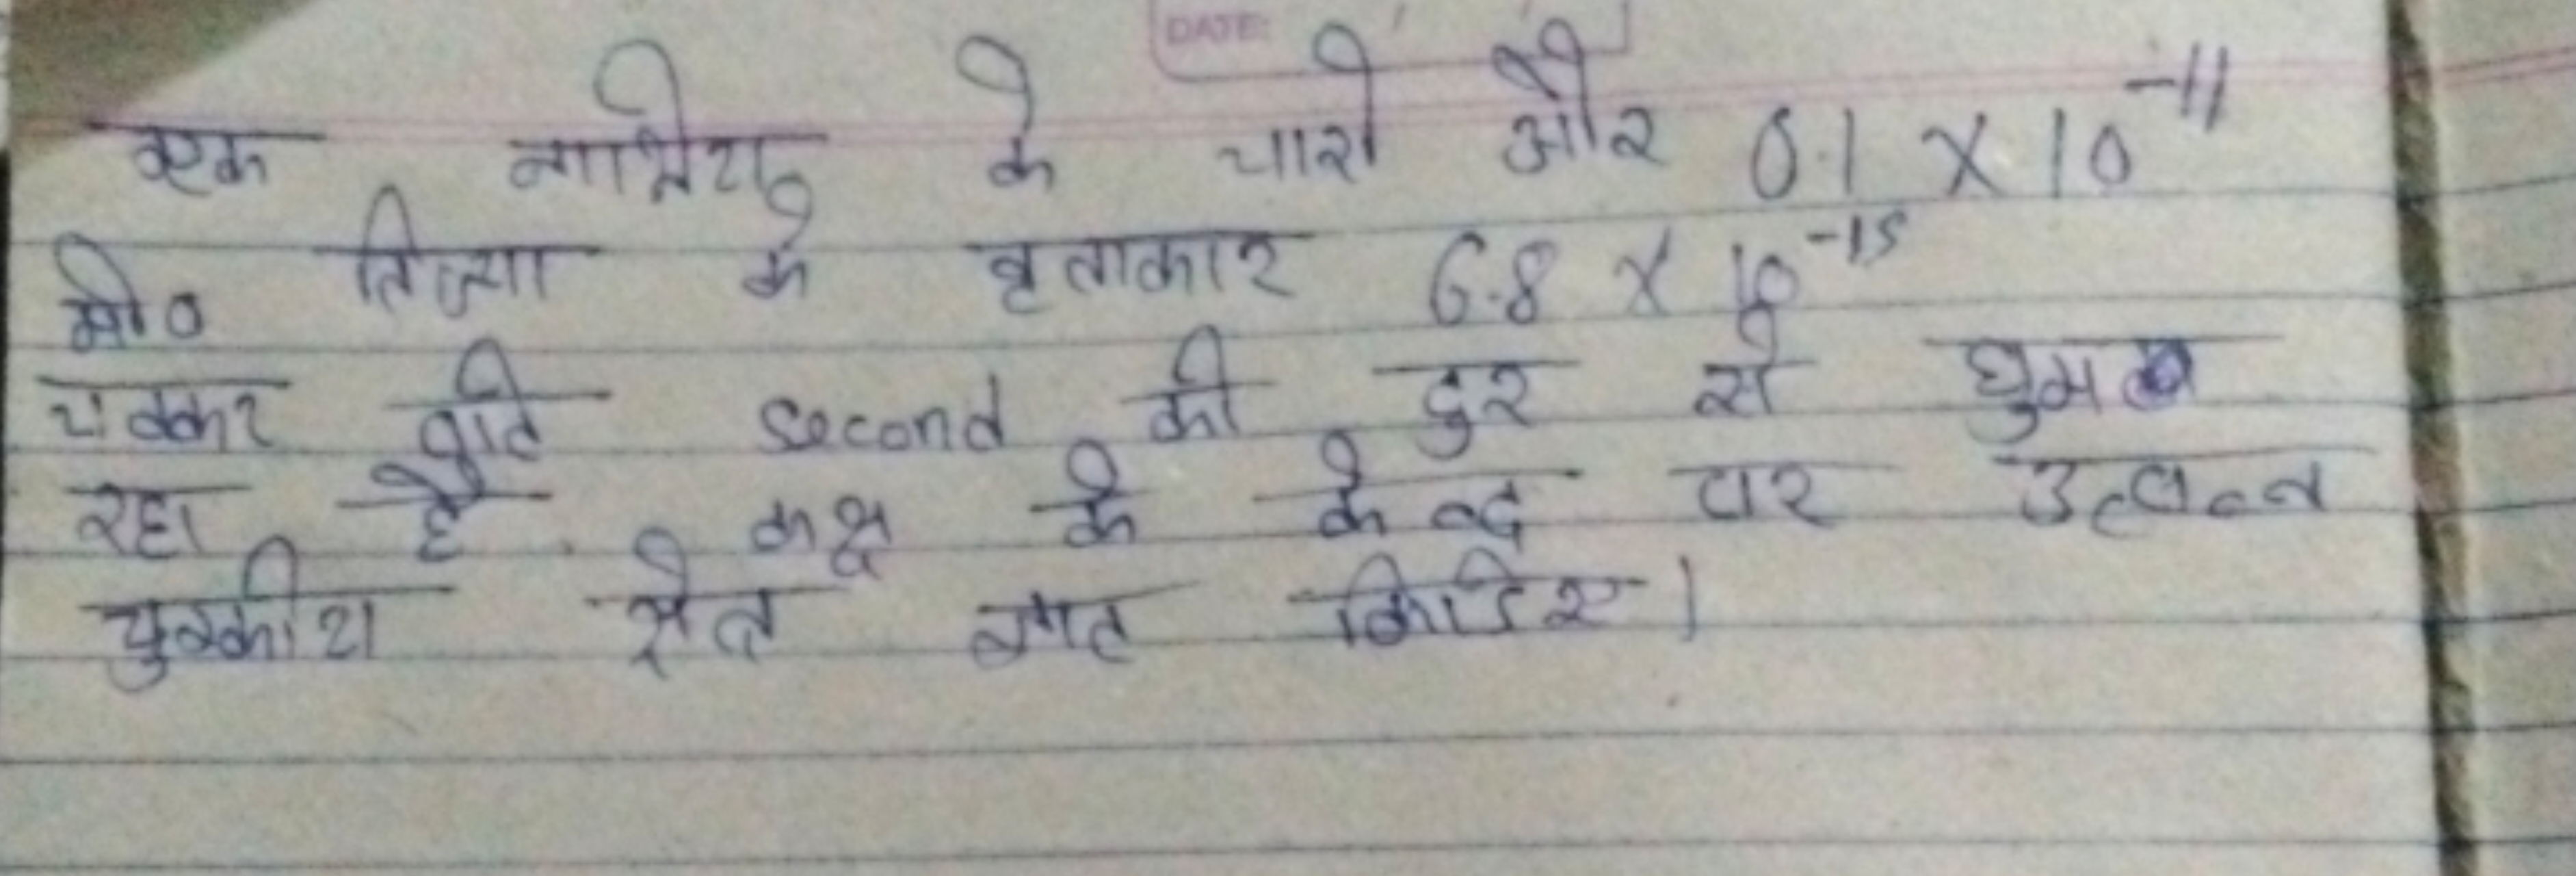 DATE:
एक नाभिय के चारो और 0.1 × 10⁻¹¹
मी० त्रिज्या के वृताकार 6.8 × 10⁻¹⁵
चक्कर प्रति second की दुर से घुम
रहा है. कक्ष के केन्द्र पर उत्पन्न
चुम्बकीय क्षेत्र ज्ञात किजिए।